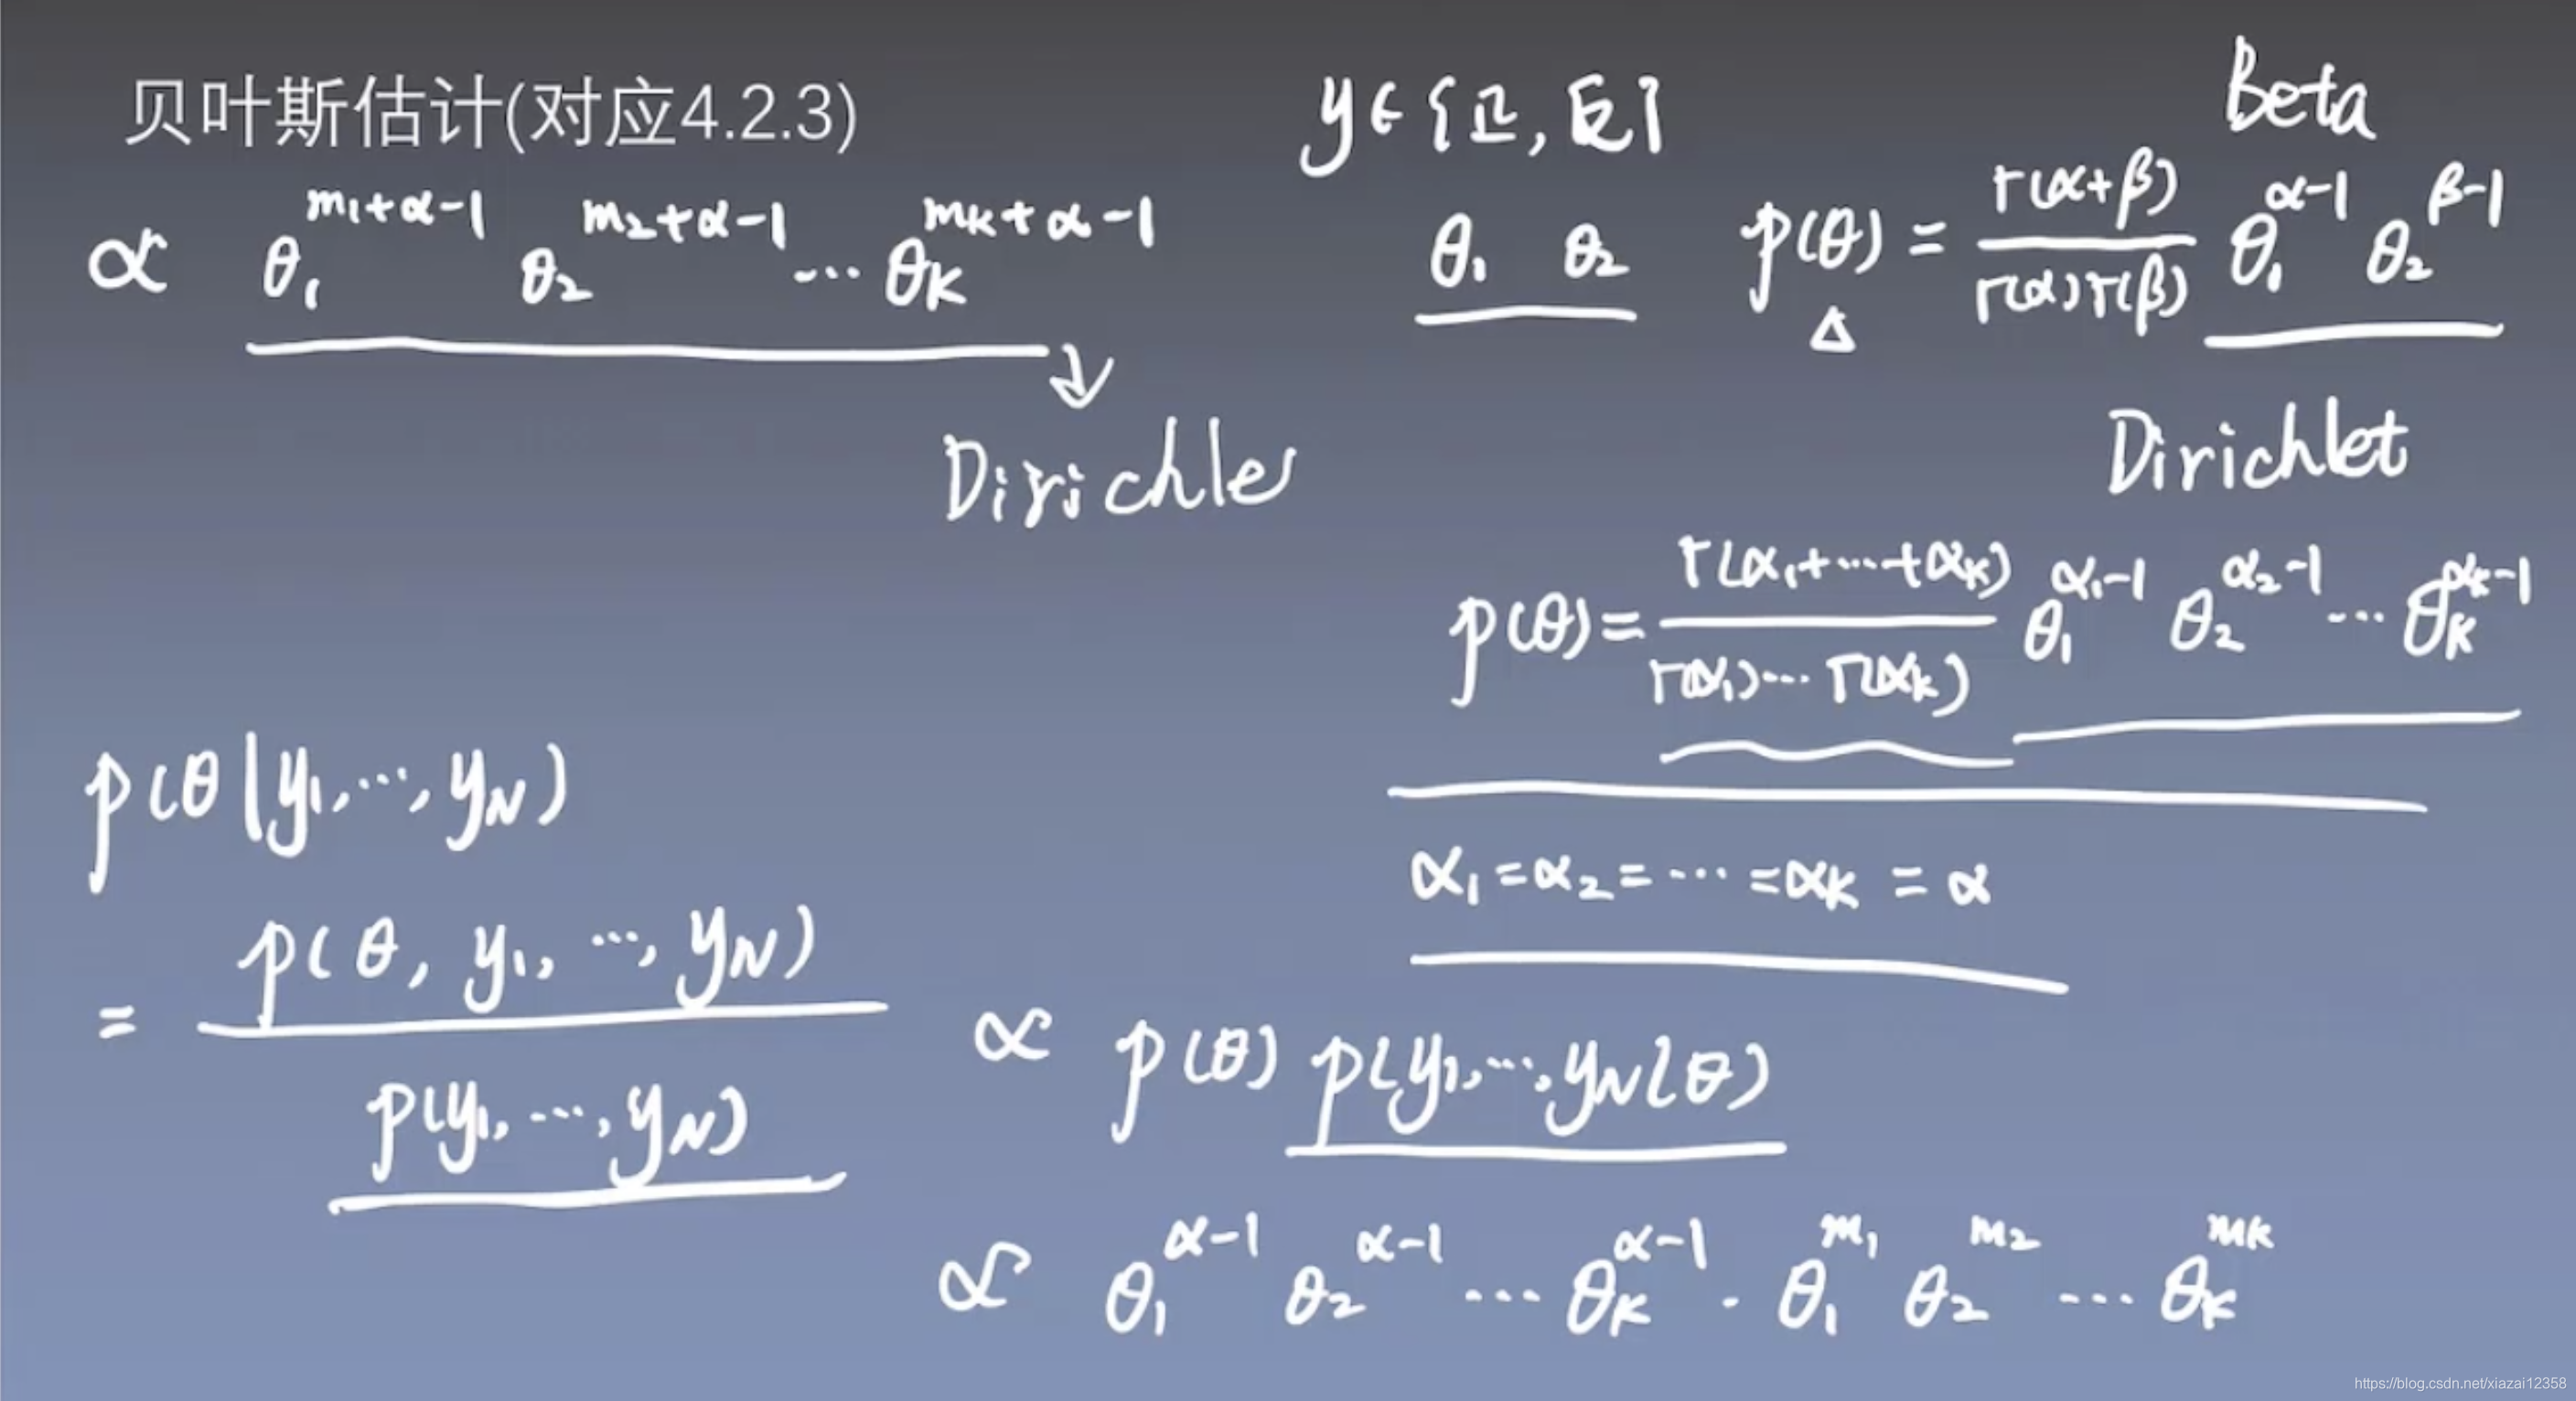 贝叶斯估计(对应4.2.3)
∝ θ₁^(m₁+α-1) θ₂^(m₂+α-1) ... θ_K^(m_K+α-1)
Dirichle
y∈{正,反}
θ₁ θ₂
Beta
p(θ) = Γ(α+β) / Γ(α)Γ(β) θ₁^(α-1) θ₂^(β-1)
Δ
Dirichlet
p(θ) = Γ(α₁+...+α_K) / Γ(α₁)...Γ(α_K) θ₁^(α₁-1) θ₂^(α₂-1) ... θ_K^(α_K-1)
α₁=α₂=...=α_K=α
p(θ|y₁,...,y_N)
= p(θ,y₁,...,y_N) / p(y₁,...,y_N) ∝ p(θ) p(y₁,...,y_N|θ)
∝ θ₁^(α-1) θ₂^(α-1) ... θ_K^(α-1) · θ₁^(m₁) θ₂^(m₂) ... θ_K^(m_K)
https://blog.csdn.net/xiazai12358